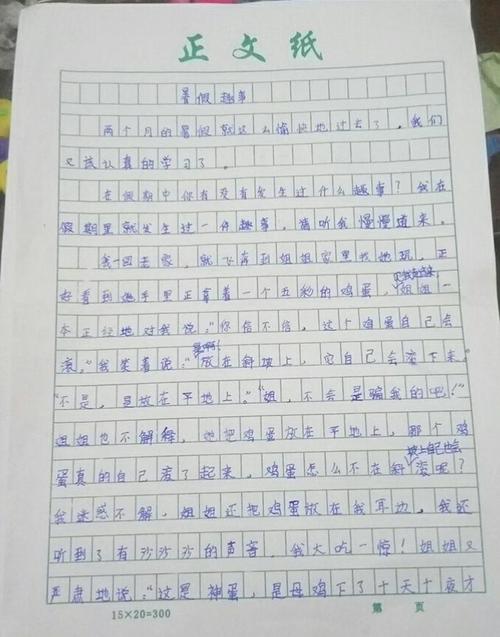 正文纸
暑假趣事
两个月的暑假就这么愉快地过去了。我们
又该认真的学习了。
在假期中你有没有发生过什么趣事？我在
假期里就发生过一件趣事，请听我慢慢道来。
我一回老家，就飞奔到姐姐家里找她玩，正
好看到她手里正拿着一个五彩的鸡蛋，姐姐一
本正经地对我说：“你信不信，这个鸡蛋自己会
滚。”我笑着说：“是啊！放在斜坡上，它自己会滚下来。”
“不是，是放在平地上。”“姐，不会是骗我的吧！”
姐姐也不解释，她把鸡蛋放在平地上，那个鸡
蛋真的自己滚了起来，鸡蛋怎么不在斜坡上自己也会滚呢？
我迷惑不解，姐姐还把鸡蛋放在我耳边，我还
听到了有沙沙沙的声音，我大吃一惊！姐姐又
严肃地说：“这是神蛋，是母鸡下了十天十夜才
15×20=300 第 页